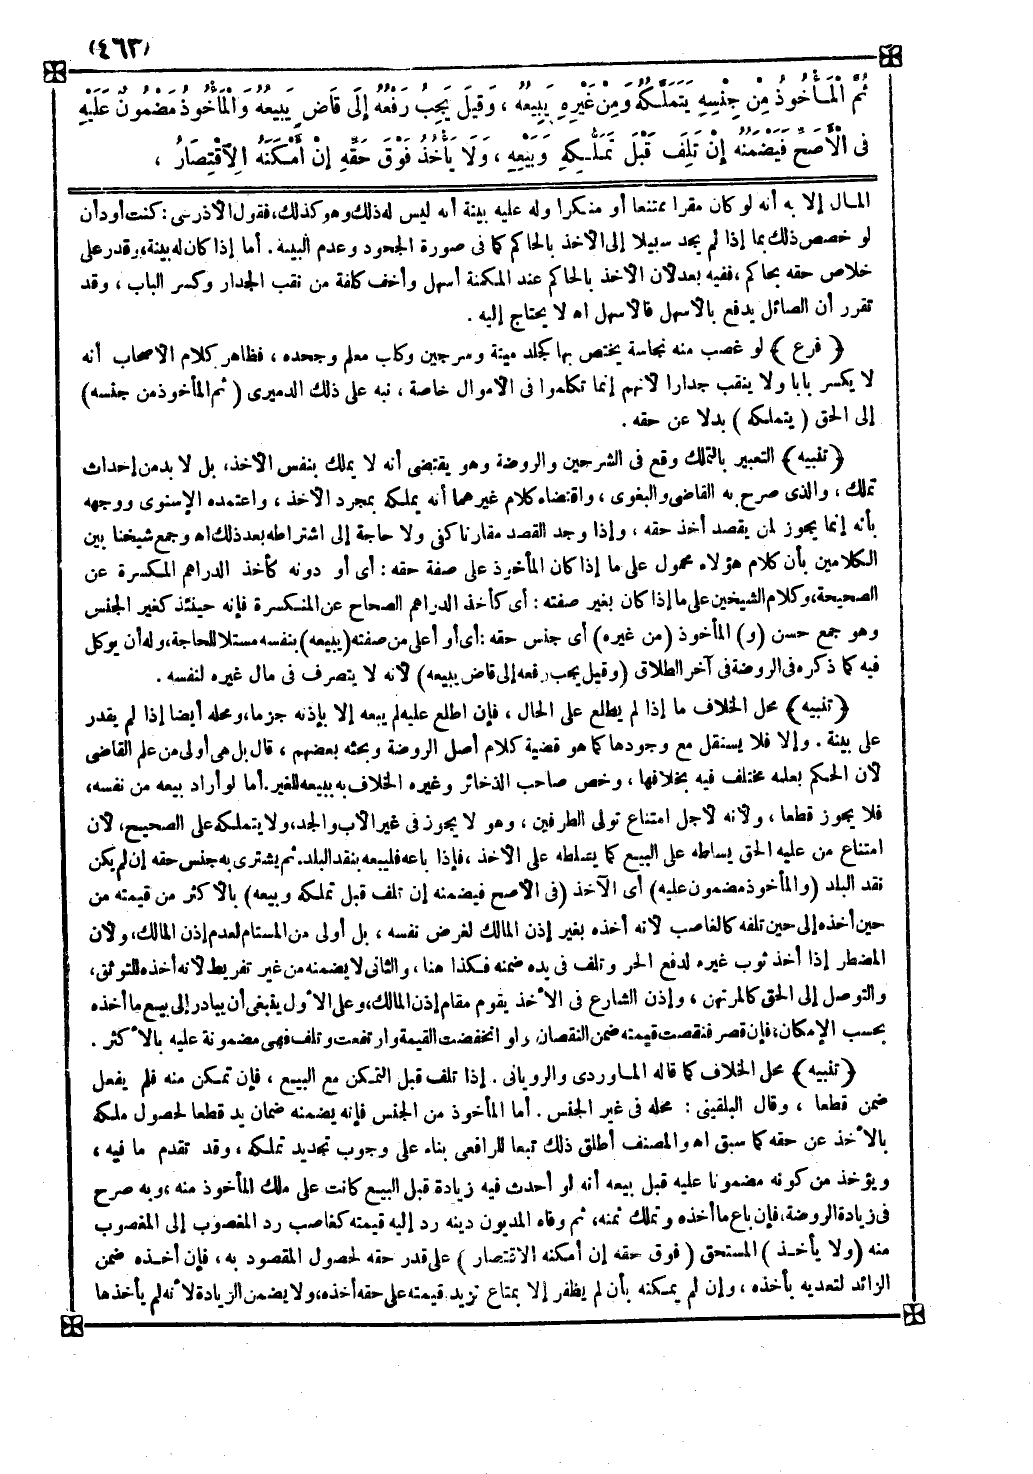 (٤٦٣)
ثُمَّ الْمَأْخُوذُ مِنْ جِنْسِهِ يَتَمَلَّكُهُ وَمِنْ غَيْرِهِ يَبِيعُهُ ، وَقِيلَ يَجِبُ رَفْعُهُ إِلَى قَاضٍ يَبِيعُهُ وَالْمَأْخُوذُ مَضْمُونٌ عَلَيْهِ
فِى الْأَصَحِّ فَيَضْمَنُهُ إِنْ تَلِفَ قَبْلَ تَمَلُّكِهِ وَبَيْعِهِ ، وَلَا يَأْخُذُ فَوْقَ حَقِّهِ إِنْ أَمْكَنَهُ الِاقْتِصَارُ ،
المال إلا به أنه لو كان مقرا ممتنعا أو منكرا وله عليه بينة أنه ليس له ذلك وهو كذلك، فقول الاذرعى : كنت أود أن
لو خصص ذلك بما إذا لم يجد سبيلا إلى الاخذ بالحاكم كما فى صورة الجحود وعدم البينة . أما إذا كان له بينة، وقدر على
خلاص حقه بحاكم ، ففيه بعد لان الاخذ بالحاكم عند المكنة أسهل وأخف كلفة من نقب الجدار وكسر الباب ، وقد
تقرر أن الصائل يدفع بالاسهل فالاسهل اه لا يحتاج إليه .
﴿ فرع ﴾ لو غصب منه نجاسة يختص بها كجلد ميتة وسرجين وكلب معلم وجحده ، فظاهر كلام الاصحاب أنه
لا يكسر بابا ولا ينقب جدارا لانهم إنما تكلموا فى الاموال خاصة ، نبه على ذلك الدميرى ( ثم المأخوذ من جنسه)
إلى الحق ( يتملكه ) بدلا عن حقه .
﴿ تنبيه ﴾ التعبير بالتملك وقع فى الشرحين والروضة وهو يقتضى أنه لا يملك بنفس الاخذ، بل لا بد من إحداث
تملك ، والذى صرح به القاضى والبغوى ، واقتضاه كلام غيرهما أنه يملكه بمجرد الاخذ ، واعتمده الإسنوى ووجهه
بأنه إنما يجوز لمن يقصد أخذ حقه ، وإذا وجد القصد مقارنا كفى ولا حاجة إلى اشتراطه بعد ذلك اه وجمع شيخنا بين
الكلامين بأن كلام هؤلاء محمول على ما إذا كان المأخوذ على صفة حقه : أى أو دونه كأخذ الدراهم المكسرة عن
الصحيحة، وكلام الشيخين على ما إذا كان بغير صفته : أى كأخذ الدراهم الصحاح عن المنكسرة فإنه حينئذ كغير الجنس
وهو جمع حسن (و) المأخوذ (من غيره) أى جنس حقه : أى أو أعلى من صفته (يبيعه) بنفسه مستقلا للحاجة، وله أن يوكل
فيه كما ذكره فى الروضة فى آخر الطلاق (وقيل يجب رفعه إلى قاض يبيعه) لانه لا يتصرف فى مال غيره لنفسه .
﴿ تنبيه ﴾ محل الخلاف ما إذا لم يطلع على الحال ، فإن اطلع عليه لم يبعه إلا بإذنه جزما، ومحله أيضا إذا لم يقدر
على بينة . وإلا فلا يستقل مع وجودها كما هو قضية كلام أصل الروضة وبحثه بعضهم ، قال بل هى أولى من علم القاضى
لان الحكم بعلمه مختلف فيه بخلافها ، وخص صاحب الذخائر وغيره الخلاف به ببيعه للغير. أما لو أراد بيعه من نفسه،
فلا يجوز قطعا ، ولانه لاجل امتناع تولى الطرفين ، وهو لا يجوز فى غير الاب والجد، ولا يتملكه على الصحيح، لان
امتناع من عليه الحق يسلطه على البيع كما يتسلطه على الاخذ ، فإذا باعه فليبعه بنقد البلد. ثم يشترى به جنس حقه إن لم يكن
نقد البلد (والمأخوذ مضمون عليه) أى الآخذ (فى الاصح فيضمنه إن تلف قبل تملكه وبيعه) بالاكثر من قيمته من
حين أخذه إلى حين تلفه كالغاصب لانه أخذه بغير إذن المالك لغرض نفسه ، بل أولى من المستام لعدم إذن المالك، ولان
المضطر إذا أخذ ثوب غيره لدفع الحر وتلف فى يده ضمنه فكذا هنا ، والثانى لا يضمنه من غير تفريط لانه أخذه للتوثق،
والتوصل إلى الحق كالمرتهن ، وإذن الشارع فى الأخذ يقوم مقام إذن المالك، وعلى الأول ينبغى أن يبادر إلى بيع ما أخذه
بحسب الإمكان، فإن قصر فنقصت قيمته ضمن النقصان، ولو انخفضت القيمة وارتفعت وتلف فهى مضمونة عليه بالأكثر .
﴿ تنبيه ﴾ محل الخلاف كما قاله الماوردى والرويانى . إذا تلف قبل التمكن مع البيع ، فإن تمكن منه فلم يفعل
ضمن قطعا ، وقال البلقينى : محله فى غير الجنس . أما المأخوذ من الجنس فإنه يضمنه ضمان يد قطعا لحصول ملكه
بالأخذ عن حقه كما سبق اه والمصنف أطلق ذلك تبعا للرافعى بناء على وجوب تجديد تملكه ، وقد تقدم ما فيه ،
ويؤخذ من كونه مضمونا عليه قبل بيعه أنه لو أحدث فيه زيادة قبل البيع كانت على ملك المأخوذ منه ، وبه صرح
فى زيادة الروضة، فإن باع ما أخذه وتملك ثمنه، ثم وفاه المديون دينه رد إليه قيمته كغاصب رد المغصوب إلى المغصوب
منه (ولا يأخذ ) المستحق ( فوق حقه إن أمكنه الاقتصار ) على قدر حقه لحصول المقصود به ، فإن أخذه ضمن
الزائد لتعديه بأخذه ، وإن لم يمكنه بأن لم يظفر إلا بمتاع تزيد قيمته على حقه أخذه، ولا يضمن الزيادة لأنه لم يأخذها